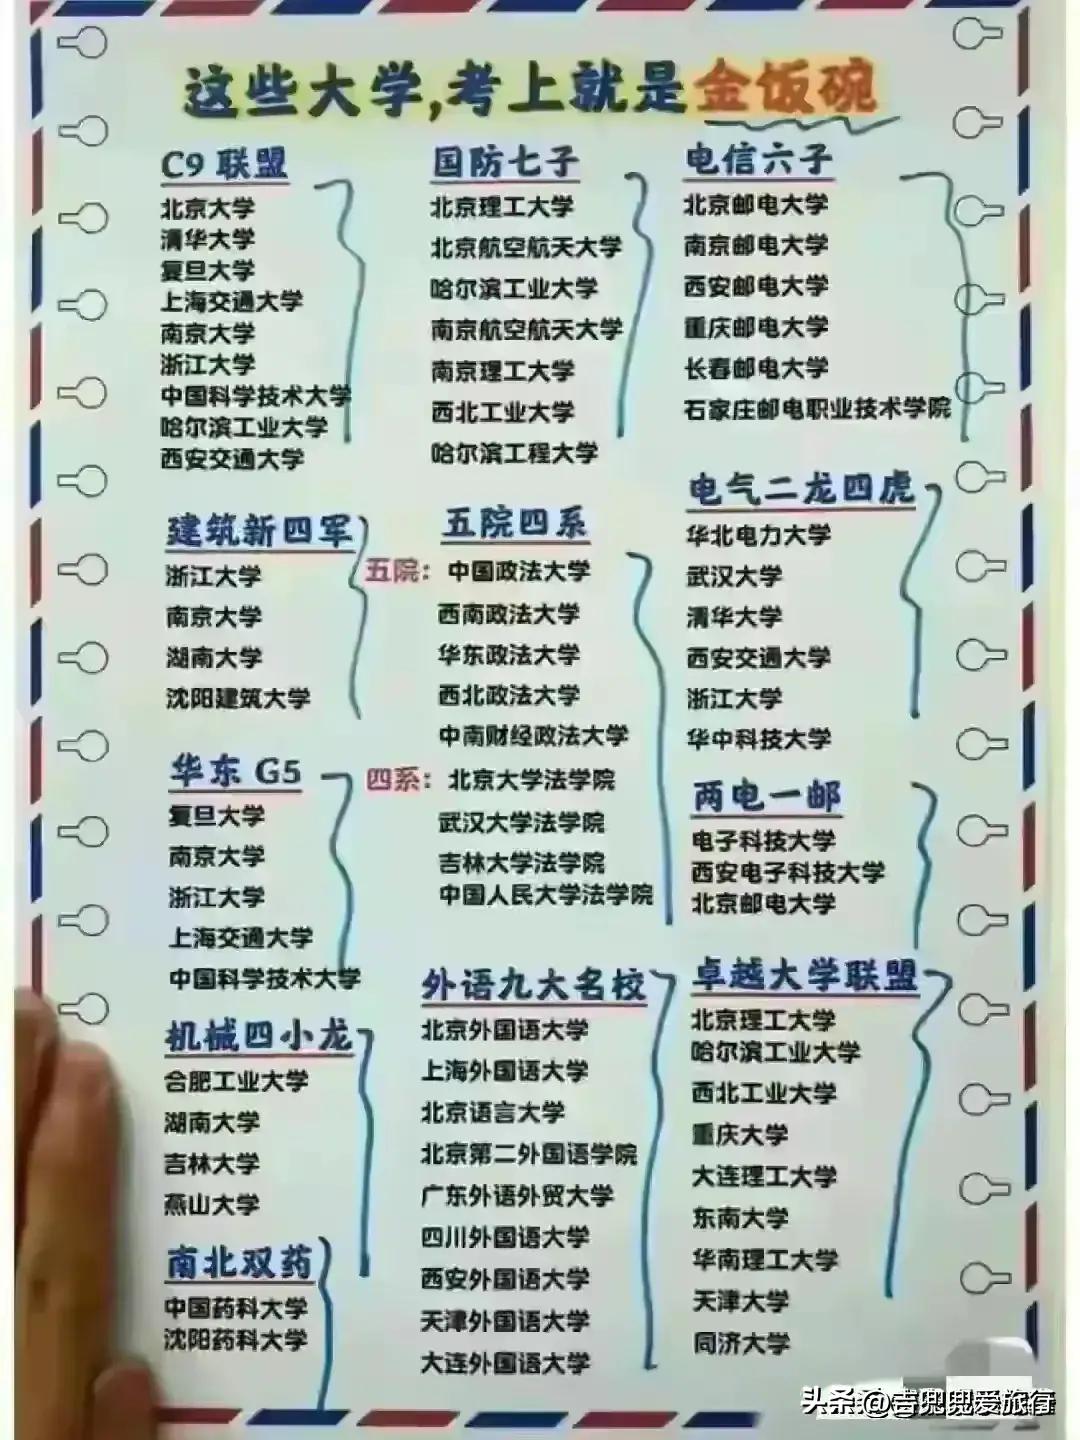 这些大学,考上就是金饭碗
C9 联盟
北京大学
清华大学
复旦大学
上海交通大学
南京大学
浙江大学
中国科学技术大学
哈尔滨工业大学
西安交通大学
国防七子
北京理工大学
北京航空航天大学
哈尔滨工业大学
南京航空航天大学
南京理工大学
西北工业大学
哈尔滨工程大学
电信六子
北京邮电大学
南京邮电大学
西安邮电大学
重庆邮电大学
长春邮电大学
石家庄邮电职业技术学院
建筑新四军
浙江大学
南京大学
湖南大学
沈阳建筑大学
五院四系
五院：中国政法大学
西南政法大学
华东政法大学
西北政法大学
中南财经政法大学
四系：北京大学法学院
武汉大学法学院
吉林大学法学院
中国人民大学法学院
电气二龙四虎
华北电力大学
武汉大学
清华大学
西安交通大学
浙江大学
华中科技大学
华东 G5
复旦大学
南京大学
浙江大学
上海交通大学
中国科学技术大学
两电一邮
电子科技大学
西安电子科技大学
北京邮电大学
机械四小龙
合肥工业大学
湖南大学
吉林大学
燕山大学
外语九大名校
北京外国语大学
上海外国语大学
北京语言大学
北京第二外国语学院
广东外语外贸大学
四川外国语大学
西安外国语大学
天津外国语大学
大连外国语大学
卓越大学联盟
北京理工大学
哈尔滨工业大学
西北工业大学
重庆大学
大连理工大学
东南大学
华南理工大学
天津大学
同济大学
南北双药
中国药科大学
沈阳药科大学
头条@吉兜兜爱旅行